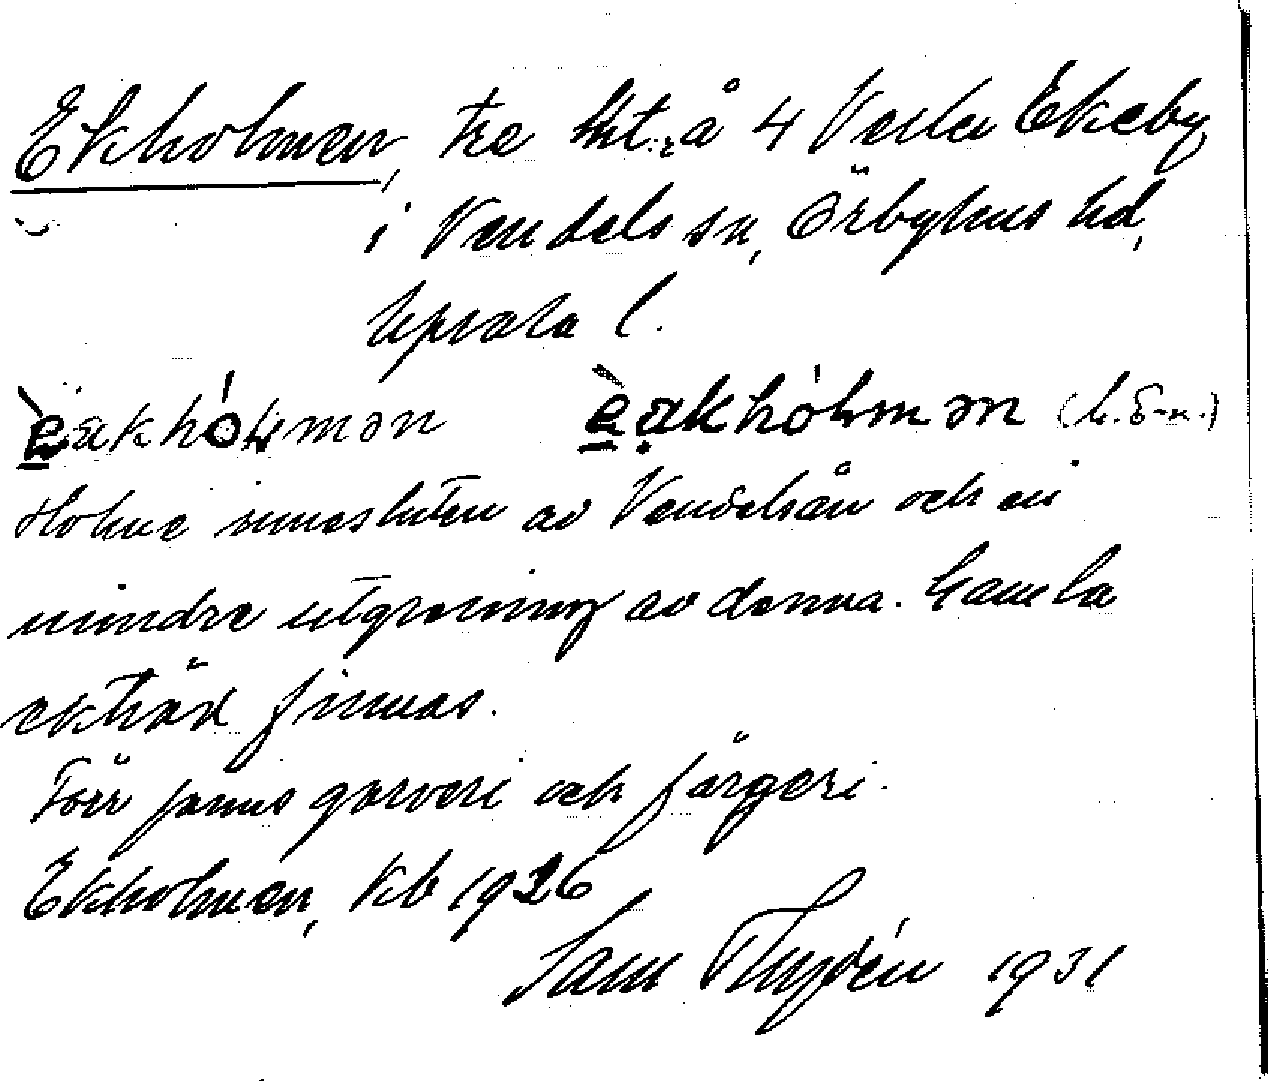 Ekholmen, tre lht. å 4 Ekeby
i Vendels sn, Örbyhus hd,
Upsala l.
èækhólmən èækhólmən
Holme innesluten av Vendelsån och en
mindre utgrening av denna. Gamla
ekträd finnas.
Förr fanns garveri och färgeri.
Ekholmen, kb 1926
Sam 1931